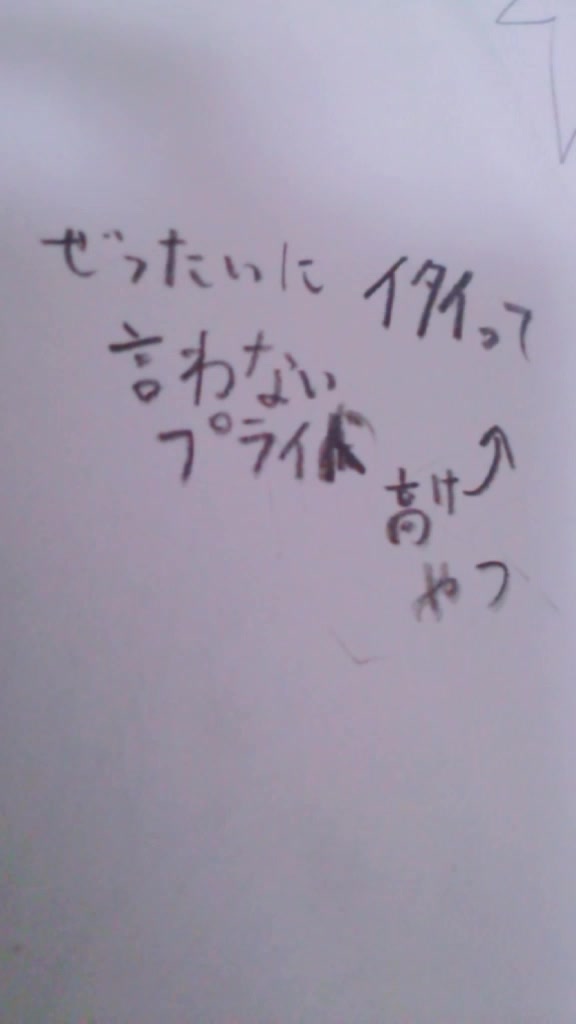 ぜったいに イタイって
言わない
プライド
高け↗
やつ